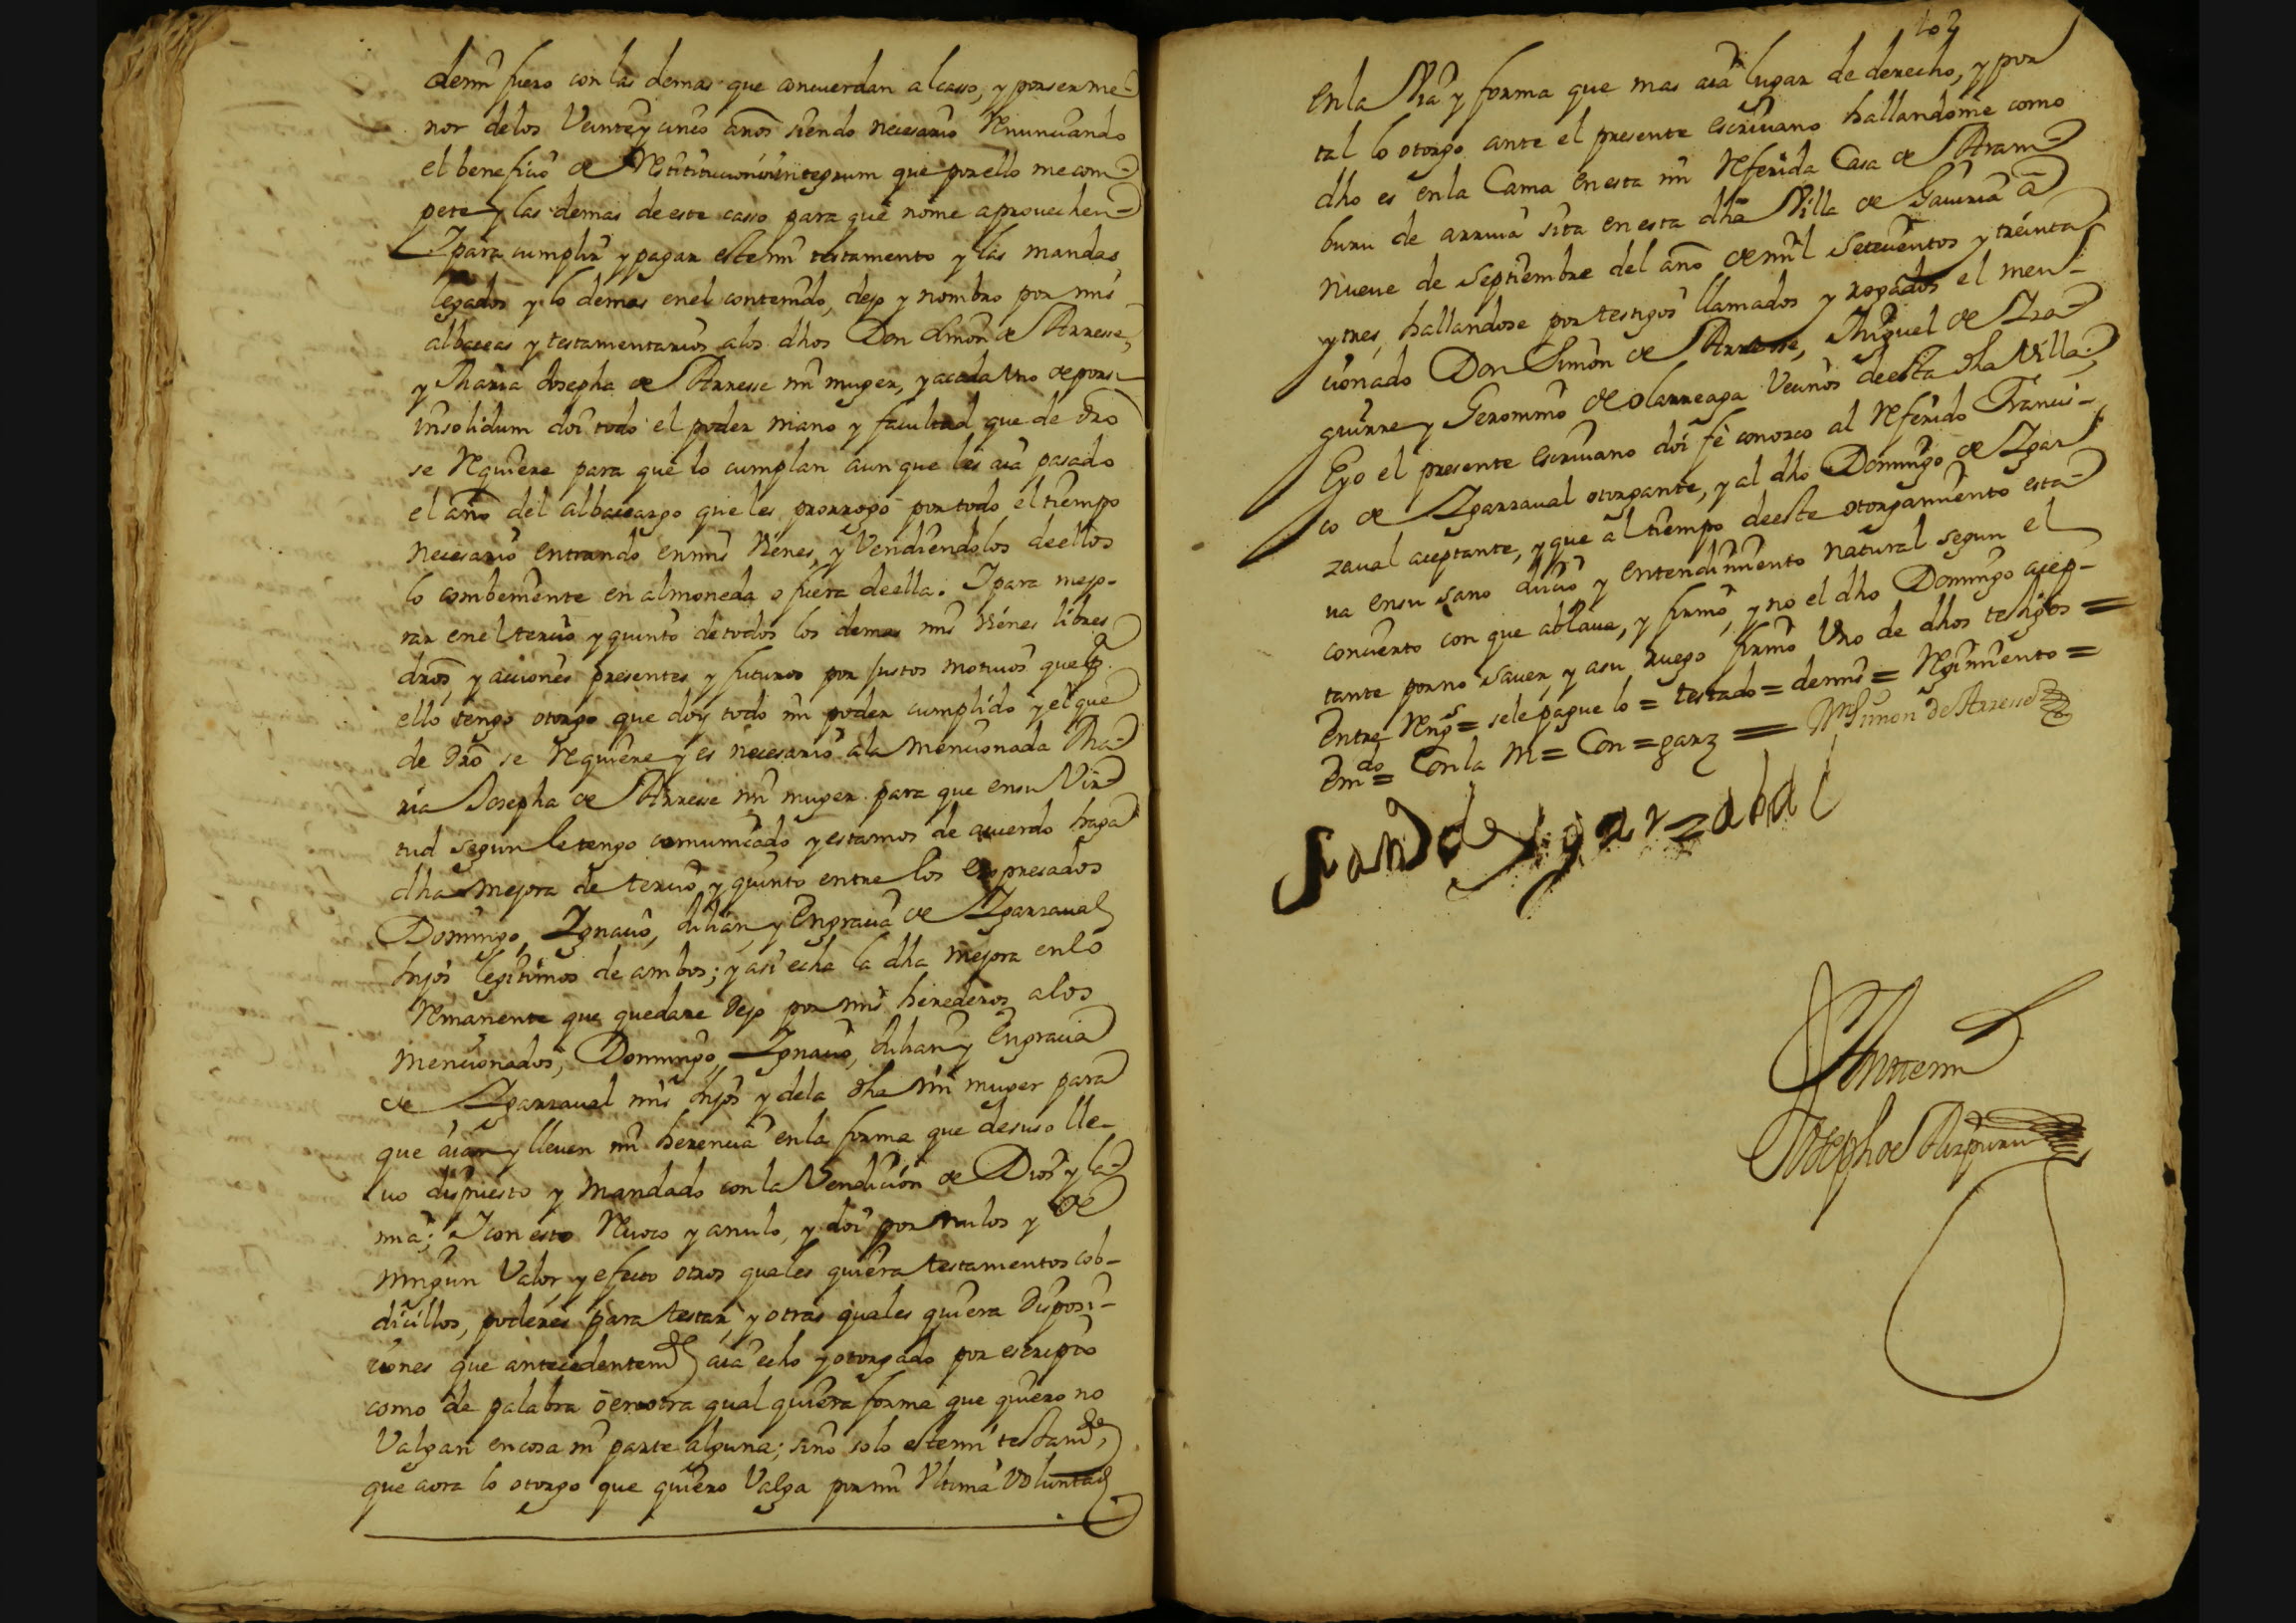 demi fuero con las demas que concuerdan alcasso, y porser me-
nor delos Veinte y cinco años siendo necesario Renunciando
el beneficio de Restitucion in integrum que porello me com-
pete y las demas de este casso para que nome aprouechen
Ipara cumplir y pagar estemi testamento y las mandas
legados y lo demas enel contenido, dejo y nombro por mis
albaceas y testamentarios alos dhos Don Simon de Arresse,
y Maria Josepha de Arresse mi muger, y acada Vno depor si
insolidum doi todo el poder mano y facultad que de dro
se Requiere para que lo cumplan aun que les aia pasado
el año del albaceazgo que les prorrogo por todo el tiempo
necesario entrando enmis Vienes, y Vendiendolos deellos
lo combeniente en almoneda o fuera deella. Ipara mejo-
rar enel tercio y quinto detodos los demas mis Vienes libres
dros, y acciones presentes y futuros por Justos motiuos que p.
ello tengo otorgo que doy todo mi poder cumplido y el que
de dro se Requiere y es necesario ala mencionada Ma-
ria Josepha de Arresse mi muger para que ensu Vir-
tud segun letengo comunicado y estamos de acuerdo haga
dha mejora de tercio y quinto entre los expresados
Domingo, Ignacio, Julian y Engracia de Ygarzaual
hijos legitimos de ambos; y asi echa la dha mejora enlo
Remanente que quedare Dejo por mis herederos alos
mencionados, Domingo, Ignacio, Julian y Engracia
de Ygarzaual mis hijos y dela dha mi muger para
que aian y lleuen mi herencia enla forma que desuso lle-
uo dispuesto y mandado conla Vendicion de Dios y la
mia; I con esto Reuoco y anulo, y doi por nulos y de
ningun Valor y efecto otros quales quiera testamentos cob-
dicillos, poderes para testar, y otras quales quiera Disposi-
ciones que antecedentemte aia echo y otorgado por escripto
como de palabra o enotra qual quiera forma que quiero no
Valgan encosa ni parte alguna; sino solo estemi testamto,
que aora lo otorgo que quiero Valga por mi Vltima Voluntad
enla Via y forma que mas aia lugar de derecho, y por
tal lo otorgo ante el presente escriuano hallandome como
dho es enla Cama enesta mi Referida Casa de Aram-
buru de arriua sita enesta dha Villa de Gauiria a
nueue de septiembre del año de mil setecientos y treinta
y tres, hallandose por testigos llamados y rogados el men-
cionado Don Simon de Arresse, Miguel de Yza-
guirre y Geronimo de olarreaga Vecinos deesta dha Villa,
Eyo el presente escriuano doi fe conozco al Referido Francis-
co de Ygarzaual otorgante, y al dho Domingo de Ygar
zaual aceptante, y que al tiempo deeste otorgamiento esta-
ua ensu sano Juicio y entendimiento natural segun el
concierto con que ablaua, y firmo, y no el dho Domingo acep-
tante porno sauer, y asu ruego firmo Vno de dhos testigos =
Entre Rengs = sele pague lo = testado = demis = Regimiento =
Emdo = Conla m = Con = garz = Dn Simon de Arresse
Franco de ygarzabal
Ante mi
Joseph de Aizpuru